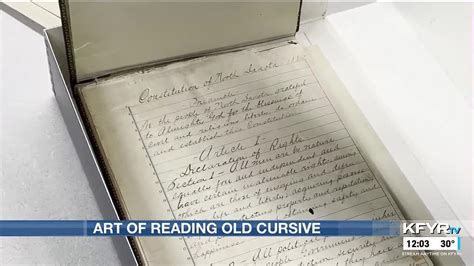 Constitution of North Dakota
Preamble
We the people of North Dakota, grateful
to Almighty God for the blessings of
civil and religious liberty, do ordain
and establish this Constitution
Article I
Declaration of Rights
Section 1 - All men are by nature
equally free and independent and
have certain inalienable rights, among
which are those of enjoying and
life and liberty acquiring, posses
protecting property and reputation
safety and
All political
people Government
ART OF READING OLD CURSIVE
KFYR TV
12:03 30°
STREAM ANYTIME ON KFYR+